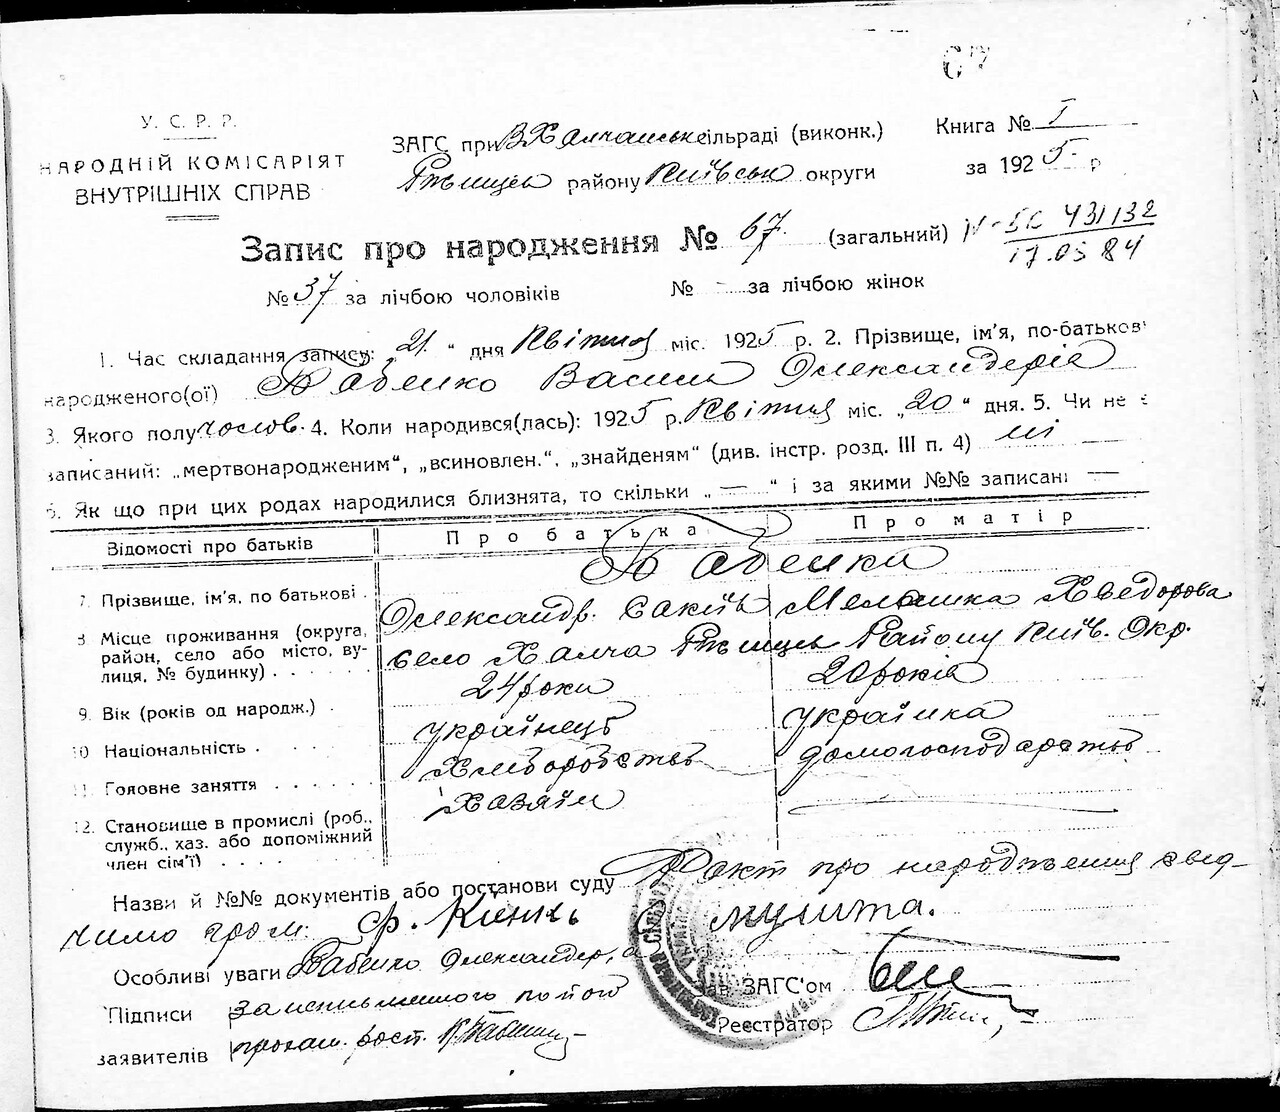 67
У. С. Р. Р.
НАРОДНІЙ КОМІСАРІЯТ
ВНУТРІШНІХ СПРАВ
ЗАГС при В Халчанськ сільраді (виконк.)
Ржищев району Київськ округи
Книга № I
за 1925 р
Запис про народження № 67. (загальний)
№ 37 за лічбою чоловіків № – за лічбою жінок
431132
17.05 84
1. Час складання запису: „21. “ дня Квітня міс. 1925 р. 2. Прізвище, ім'я, по-батькові
народженого(ої) Бабенко Василь Олександерів
3. Якого полу чолов. 4. Коли народився(лась): 1925 р. Квітня міс. „20 “ дня. 5. Чи не є
записаний: „мертвонародженим“, „всиновлен.“, „знайденям“ (див. інстр. розд. III п. 4) ні —
6. Як що при цих родах народилися близнята, то скільки „ — “ і за якими №№ записані —
Відомості про батьків
Про батька
Про матір
Бабенки
7. Прізвище, ім'я, по батькові .
Олександр. Мелашка Хведорова
8 Місце проживання (округа, район, село або місто, вулиця, № будинку) . . . . .
село Халча Ржищев Району Київ. Окр.
9. Вік (років од народж.) .
24 роки
20 років
10 Національність . . . . .
українець
українка
11. Головне заняття . . . . . .
Хліборобство
домогосподарство
12. Становище в промислі (роб., служб., хаз. або допоміжний член сім'ї) . . . .
Хазяїн
Назви й №№ документів або постанови суду Факт про народження свід-
чимо гром. Ф.
Особливі уваги Бабенко Олександер, а
Підписи за неписьменного по його
заявителів прохан. розп.
Зав. ЗАГС'ом
Реєстратор